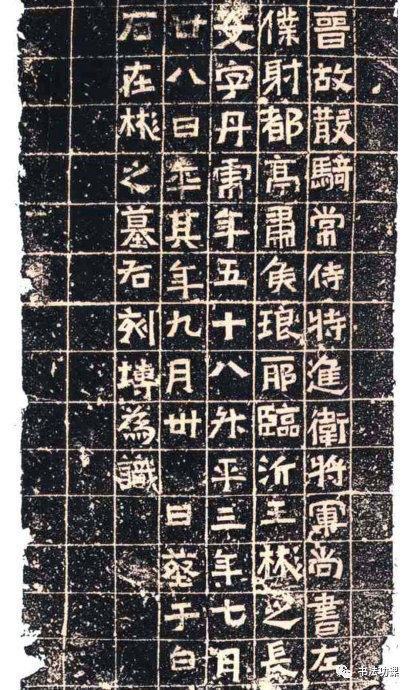 晉故散騎常侍特進衛將軍尚書左
僕射都亭肅侯琅耶臨沂王彬之長
女字丹虎年五十八升平三年七月
廿八日卒其年九月卅日葬于白
石在彬之墓右刻塼為識
书法功课